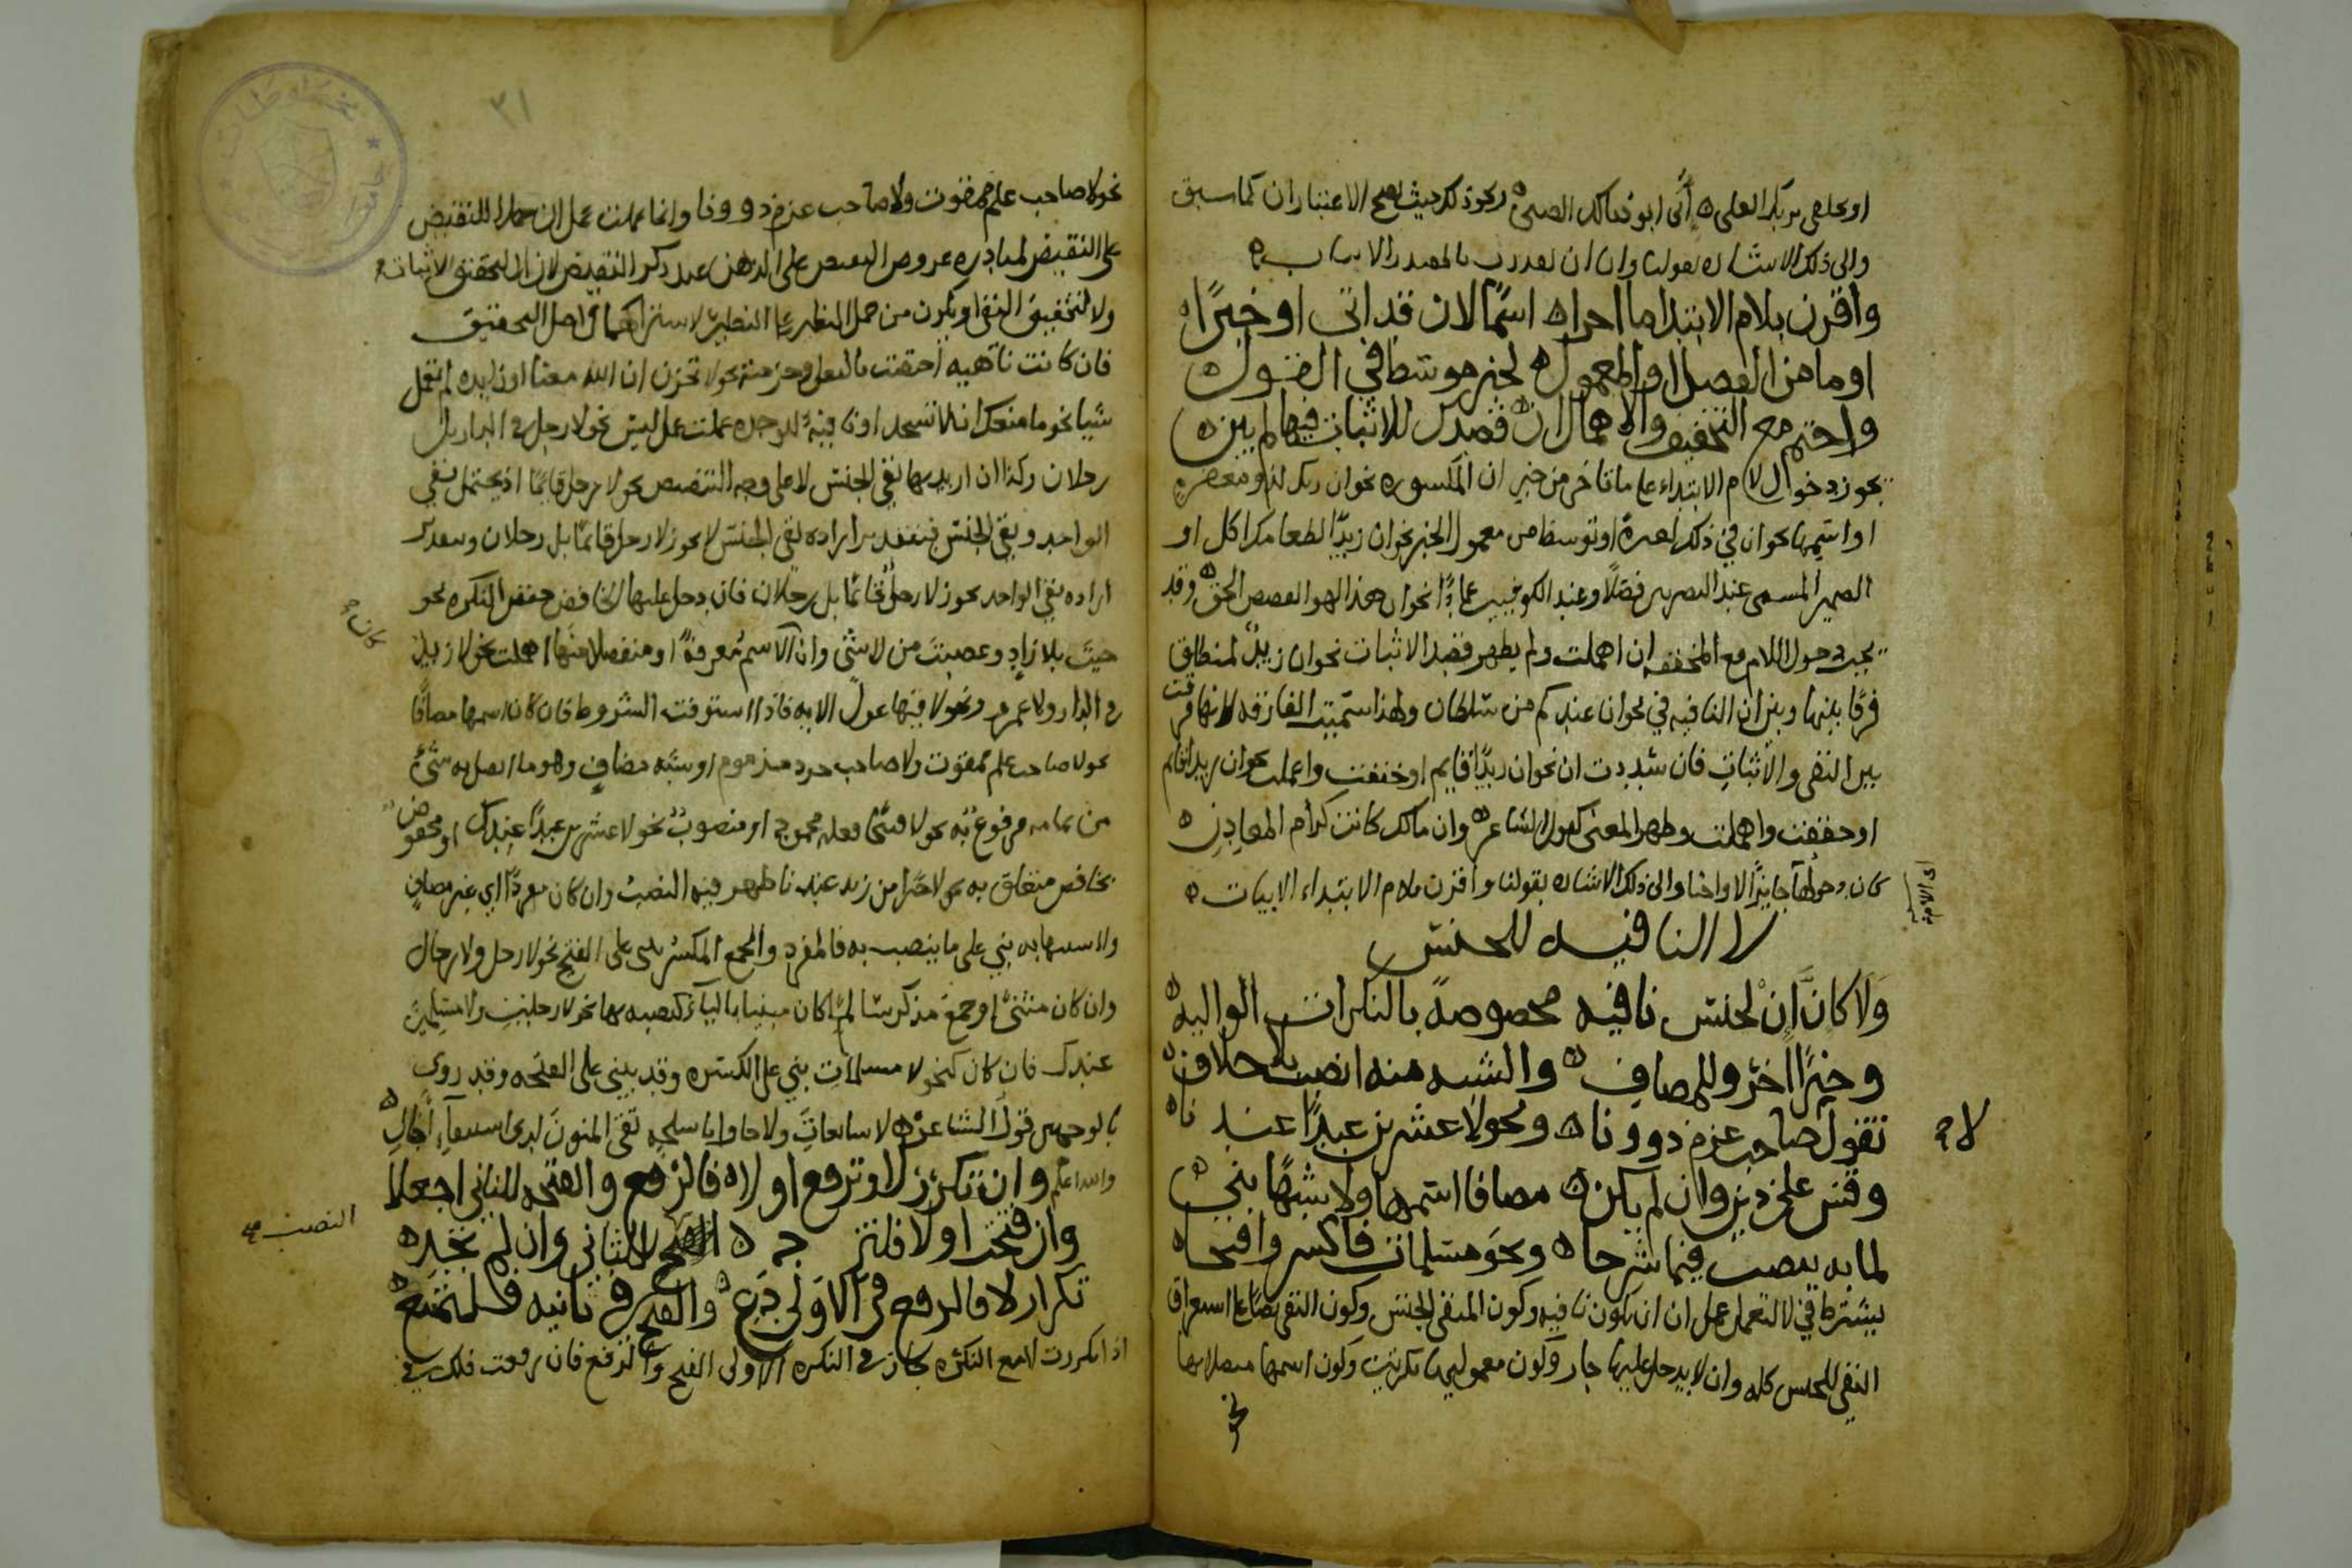 او تحلفي بربك العلي ه أنى ابو ذيالك الصبي ه ونحو ذلك حيث يصح الاعتباران كما سبق
والى ذلك الاشاره بقولنا وان ان تقدرت بالمصدر الابيات ه
واقرن بلام الابتدا ما احرا ه اسمًا لان قد اتى او خبرًا ه
او ما من الفصل او المعمول ه لخبر موسطا في القول ه
واحتم مع التخفيف والاهمال ان ه قصدك للاثبات فيها لم يبن ه
يجوز دخول لام الابتداء على ما تاخر من خبر ان المكسوره نحو ان ربك لذو مغفره
او اسمها نحو ان في ذلك لعبرة او توسط من معمول الخبر نحو ان زيدًا لطعامك اكل او
الضمير المسمى عند البصريين فصلًا وعند الكوفيين عمادًا نحو ان هذا لهو القصص الحق ه وقد
يجب دخول اللام مع المخففه ان اهملت ولم يظهر قصد الاثبات نحو ان زيدٌ لمنطلق
فرقًا بينها وبين ان النافيه في نحو ان عندكم من سلطان ولهذا سميت الفارقه لانها فرقت
بين النفي والاثبات فان شددت ان نحو ان زيدًا قايم او خففت واعملت نحو ان زيدا قايم
او خففت واهملت وظهر المعنى كقول الشاعر ه وان مالك كانت كرام المعادن ه
كان دخولها جايزًا لا واجبا والى ذلك الاشاره بقولنا واقرن بلام الابتداء الابيات ه
اي اللام
لا النافيه للجنس
وَلَا كانَّ انْ لجنس نافيه مخصوصةً بالنكرات الواليه ه
وخبرًا اخر وللمضاف ه والشبه منه انصب بلا خلاف ه
تقول لا صاحب عزم ذو ونا ه ونحو لا عشرين عبدًا عندنا ه
لا
وقس على ذين وان لم يكن ه مضافا اسمها ولا شبهًا بني ه
لما به ينصب فيما شرحا ه ونحو مسلمات فاكسر وافتحا ه
يشترط في لا لتعمل عمل ان ان تكون نافيه وكون المنفي الجنس وكون النفي نصًا على استغراق
النفي للجنس كله وان لا يدخل عليها جار وكون معموليها نكرتين وكون اسمها متصلا بها
نحو
٣١
نحو لا صاحب علم ممقوت ولا صاحب عزم ذو ونا وانما عملت عمل ان حملا للنقيض
على النقيض لمبادره عروض البعض على الذهن عند ذكر النقيض لان ان لتحقيق الاثبات
ولا لتحقيق النفي او يكون من حمل النظير على النظير لاشتراكهما في اصل التحقيق
فان كانت ناهيه اختصت بالفعل وجزمته نحو لا تحزن ان الله معنا او زايده لم تعمل
شيا نحو ما منعك ان لا تسجد او نافيةً للوحده عملت عمل ليس نحو لا رجل في الدار بل
رجلان وكذا ان اريد بها نفي الجنس لا على وجه التنصيص نحو لا رجل قايمًا اذ يحتمل نفي
الواحد ونفي الجنس فبتقدير اراده نفي الجنس لا يجوز لا رجل قائمًا بل رجلان وبتقدير
اراده نفي الواحد يجوز لا رجلٌ قائمًا بل رجلان فان دخل عليها الخافض خفض النكره نحو
جيت بلا زادٍ وغضبتَ من لا شئ وان كان الاسم معرفةً او منفصلا منها اهملت نحو لا زيدٌ
في الدار ولا عمرو ونحو لا فيها غول الايه فاذا استوفت الشروط فان كان اسمها مضافًا
نحو لا صاحب علم ممقوت ولا صاحب جود مذموم او شبه مضافٍ وهو ما اتصل به شئ
من تمامه مرفوع به نحو لا قبيحًا فعله محمود او منصوبٌ نحو لا عشرين عبدًا عندك او مخفوض
بخافض متعلق به نحو لا خيرًا من زيد عندنا ظهر فيه النصب وان كان مفردًا اي غير مضافٍ
ولا شبيها به بني على ما ينصب به فالمفرد والجمع المكسر يبنى على الفتح نحو لا رجل ولا رجال
وان كان مثنىً او جمع مذكر سالمًا كان مبنيا بالياء كنصبه بها نحو لا رجلين ولا مسلمين
عندك فان كان كنحو لا مسلمات بني على الكسره وقد يبنى على الفتحه وقد روى
بالوجهين قول الشاعر ه لا سابغاتِ ولا جاواء باسلةٍ تقي المنون لدى استيفاءِ اٰجالِ ه
والله اعلم وان تكرر لا وترفع اولا ه فالرفع والفتحه للثاني اجعلا
وان فتحت اولا فلتنر جه ه للثاني وان لم تجده ه
النصب صح
تكرار لا فالرفع في الاولى دَعِ ه والفتح في ثانيه فلتمنع ه
اذا تكررت لا مع النكره جاز في النكره الاولى الفتح والرفع فان رفعت فلك في